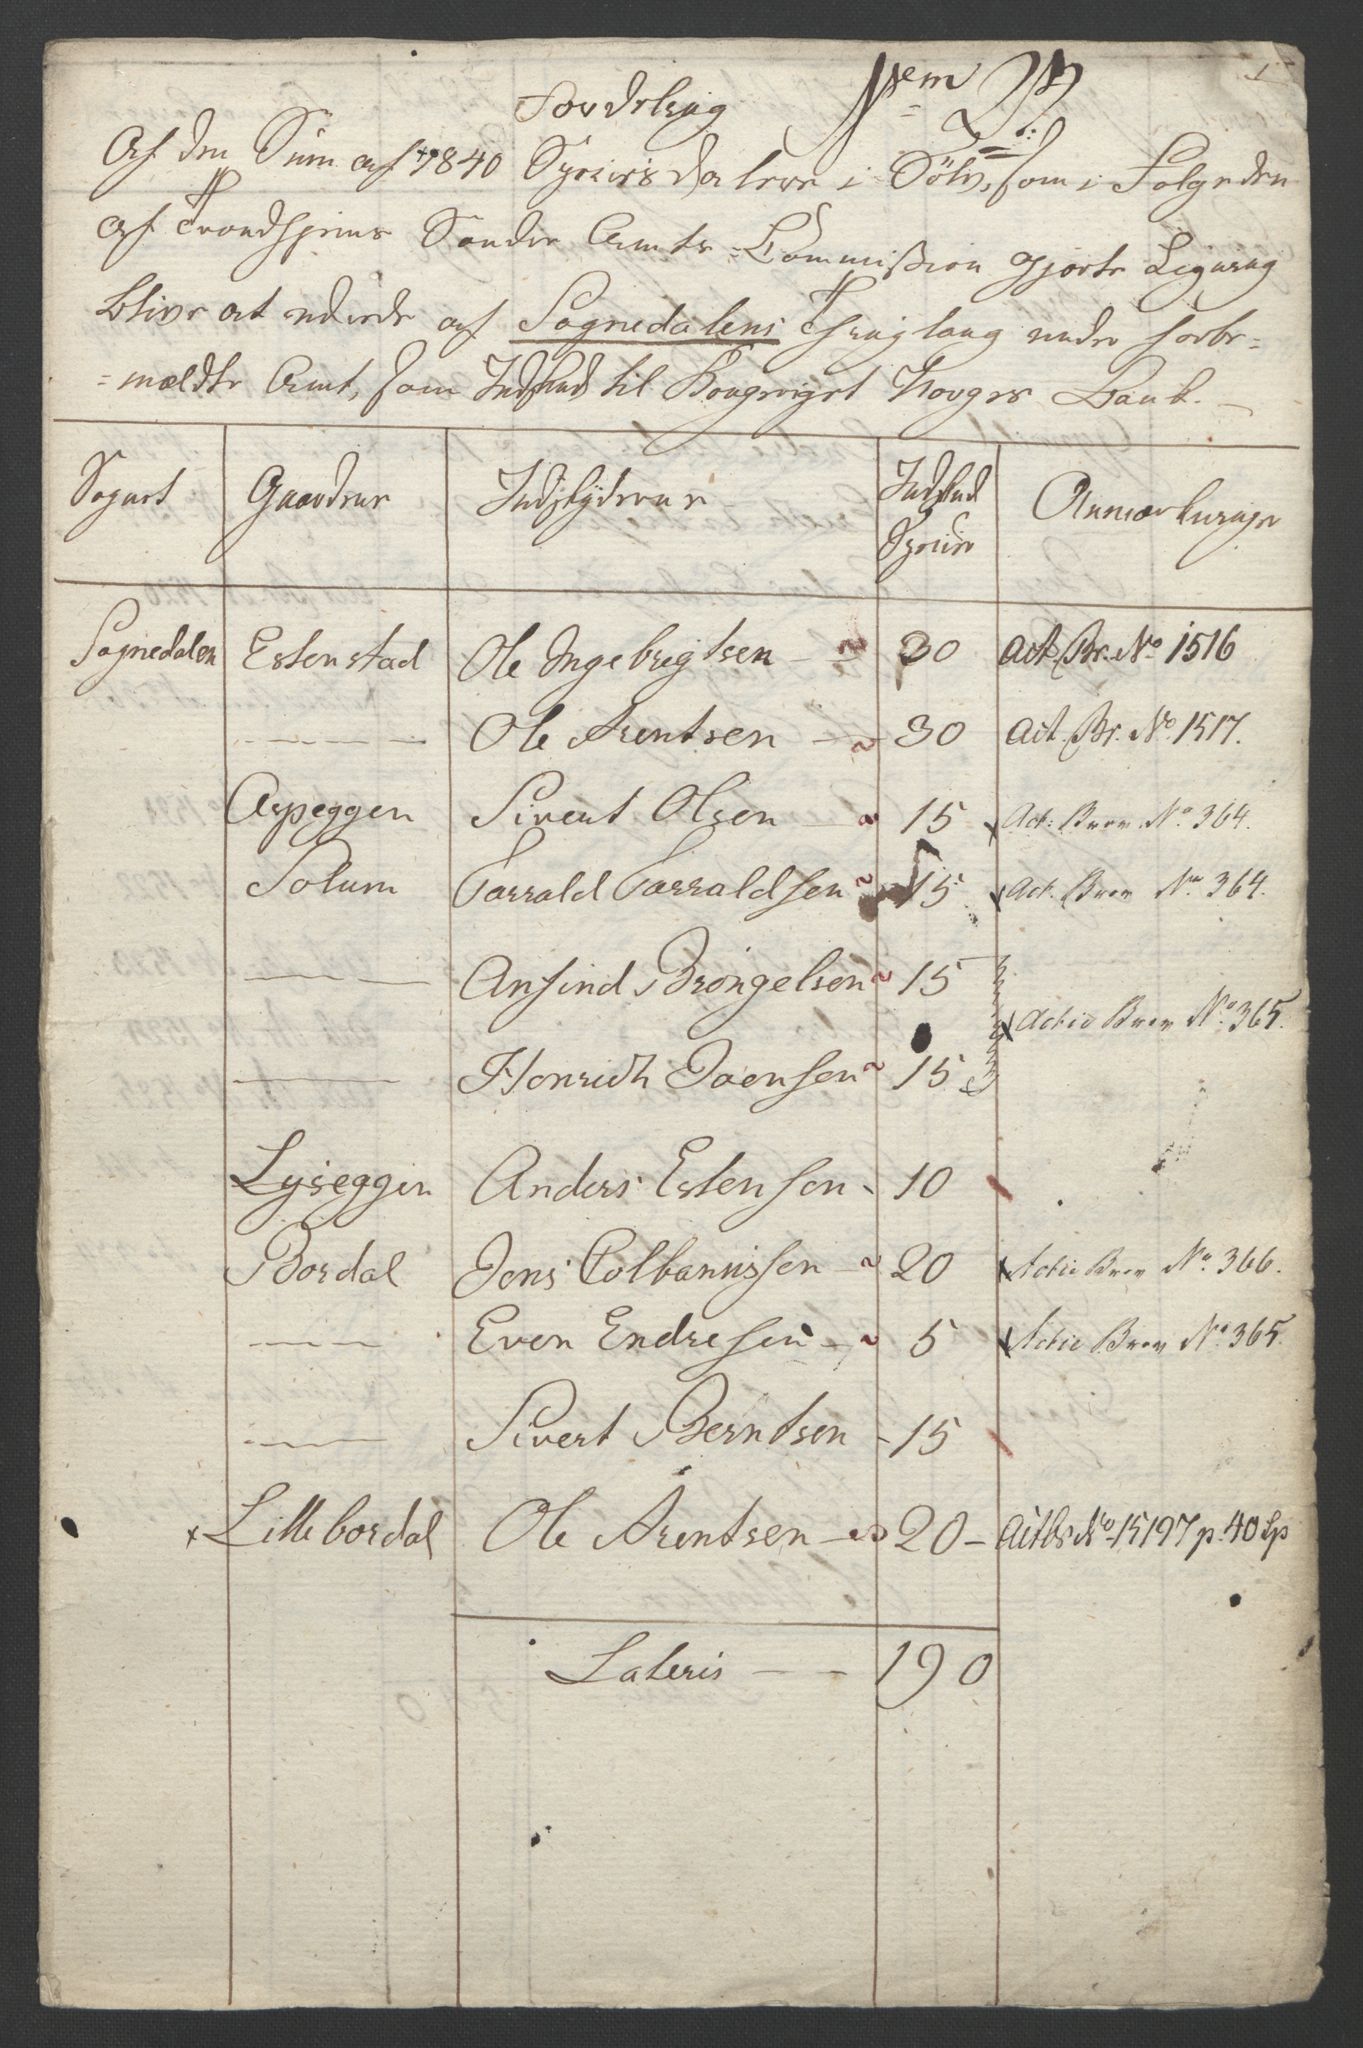 Fordeling
Af den Sum af 7840 Speciesdalere i Sölv, som i Følge den
af Trondhjems Søndre Amts-Commission gjorte Ligning
blive at udrede af Sognedalens Thinglaug under forbe=
=meldte Amt, som Indskud til Kongeriget Norges Bank.
Sognet Gaardene Indskyderne Indskud Specier Anmærkninger
Sognedalen Estenstad Ole Ingebrigtsen 30 Act. Br. No 1516
— Ole Arentsen 30 Act. Br. No 1517.
Aspeggen Sivert Olsen 15 Act: Brev No 364.
Solum Tarrald Tarraldsen 15 Act. Brev No 364.
— Ansind Bröngelsen 15
Actie Brev No 365.
— Henrich Joensen 15
Lyseggen Anders Estensen 10
Bordal Jens Colbanussen 20 Actie Brev No 366.
— Even Endresen 5 Actie Brev No 365.
— Sivert Berntsen 15
x Lillebordal Ole Arentsen 20 – No 15197 p. 40 Sp
Lateris — — 190